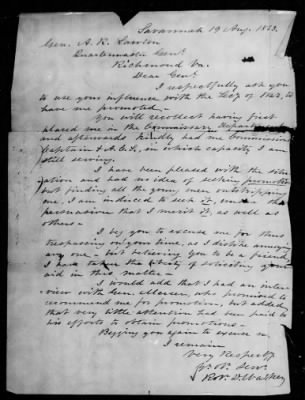 Savannah 19 Aug. 1863.
Gen. A. R. Lawton
Quartermaster Genl.
Richmond Va.
Dear Genl.
I respectfully ask you
to use your influence with the Secy of War, to
have me promoted.
You will recollect having first
placed me in the Commissary
and afterwards kindly had me Commissioned
Captain & A.C.S., in which capacity I am
still serving.
I have been pleased with the situ-
ation and had no idea of seeking promotion
but finding all the young men outstripping
me, I am induced to seek it, under the
persuasion that I merit it, as well as
others—
I beg you to excuse me for thus
trespassing on your time, as I dislike annoying
any one— but believing you to be a friend,
I have taken the liberty of soliciting your
aid in this matter—
I would add that I had an inter-
view with Gen. Mercer, who promised to
recommend me for promotion, but added
that very little attention had been paid to
his efforts to obtain promotions—
Begging you again to excuse me,
I remain
Very Respectfy
Yr. Obt. Servt.
Robt. D. Walker